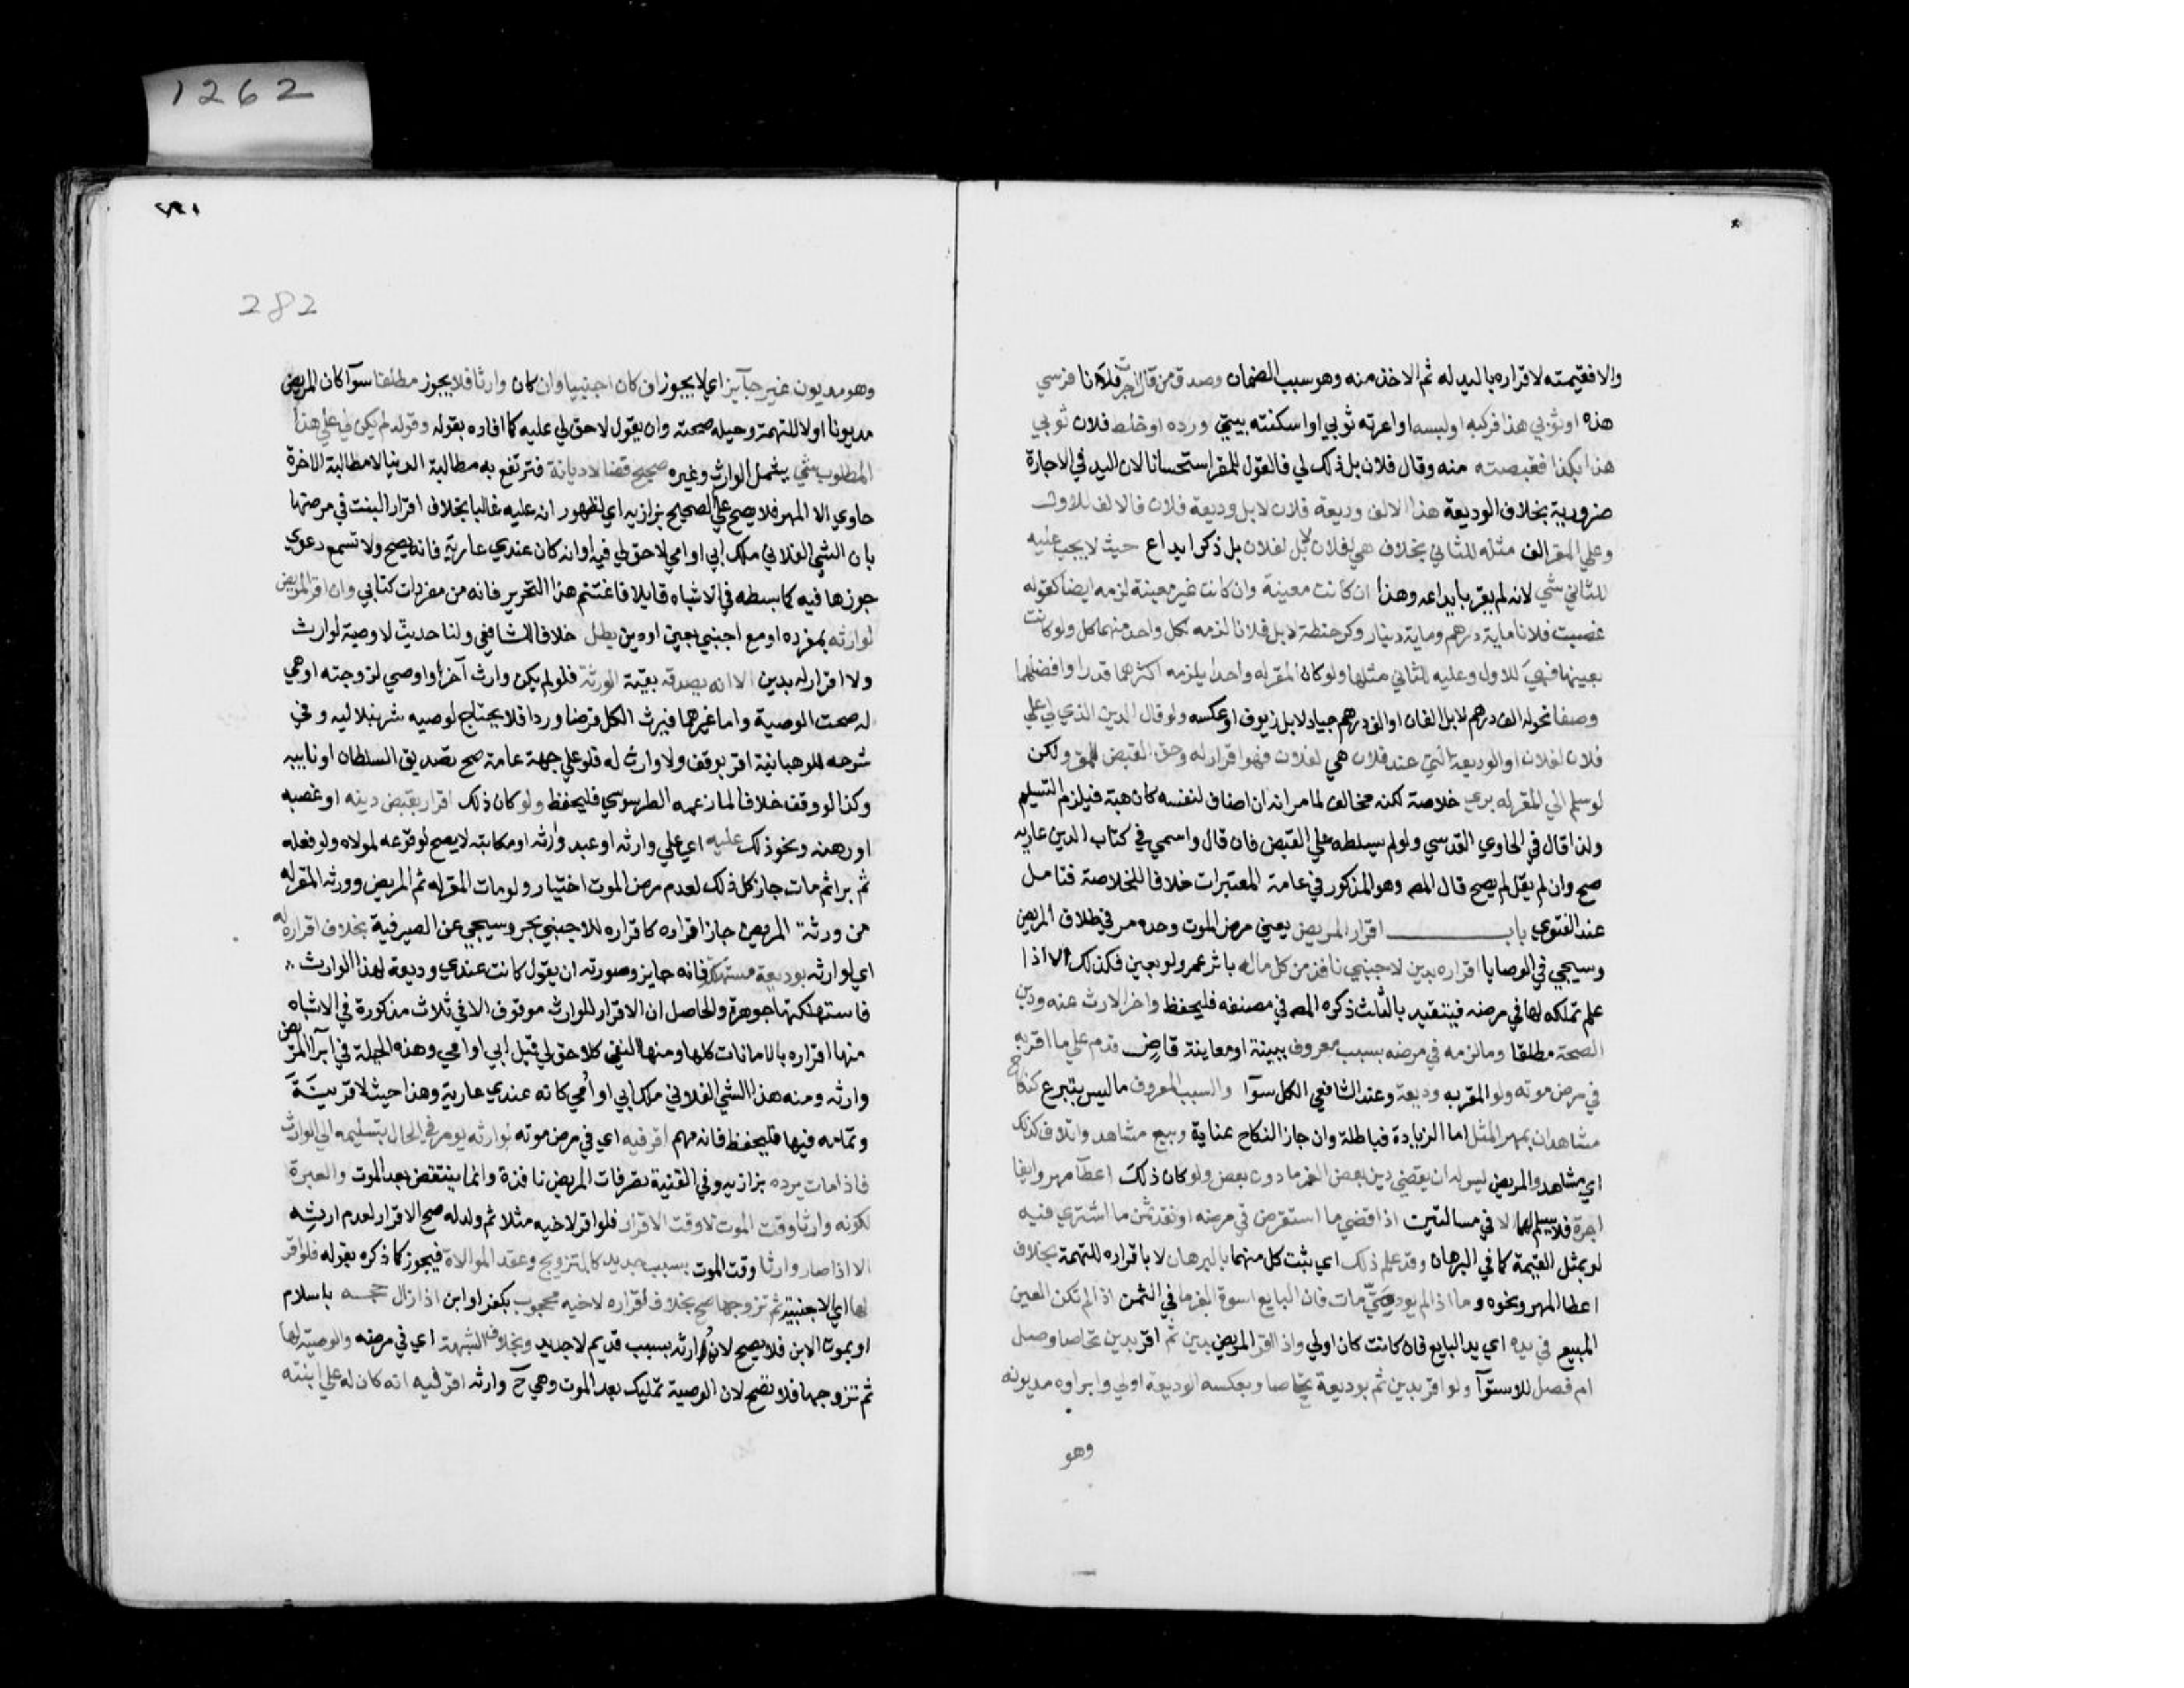 1262
والا فقيمته لاقراره باليد له ثم الاخذ منه وهو سبب الضمان وصدق من قال اجرت فلانا فرسي
هذه او ثوبي هذا فركبه او لبسه او اعرته ثوبي او اسكنته بيتي ورده او خاط فلان ثوبي
هذا بكذا فقبضته منه وقال فلان بل ذلك لي فالقول للمقر استحسانا لان اليد في الاجارة
ضرورية بخلاف الوديعة هذا الالف وديعة فلان لا بل وديعة فلان فالالف للاول
وعلي المقر الف مثله للثاني بخلاف هي لفلان لا بل لفلان بل ذكر ايداع حيث لا يجب عليه
للثاني شي لانه لم يقر بايداعه وهذا ان كانت معينة وان كانت غير معينة لزمه ايضا كقوله
غصبت فلانا ماية درهم وماية دينار وكر حنطة لا بل فلانا لزمه لكل واحد منهما كل ولو كانت
بعينها فهي للاول وعليه للثاني مثلها ولو كان المقر له واحدا يلزمه اكثرهما قدرا وافضلهما
وصفا نحو له الف درهم لا بل الفان او الف درهم جياد لا بل زيوف او عكسه ولو قال الدين الذي لي علي
فلان لفلان او الوديعة التي عند فلان هي لفلان فهو اقرار له وحق القبض للمقر ولكن
لو سلم الي المقر له بري خلاصة لكنه مخالف لما مر انه ان اضاف لنفسه كان هبة فيلزم التسليم
ولذا قال في الحاوي القدسي ولو لم يسلطه علي القبض فان قال واسمي في كتاب الدين عارية
صح وان لم يقل لم يصح قال المصـ وهو المذكور في عامة المعتبرات خلافا للخلاصة فتامل
عند الفتوي باب اقرار المريض يعني مرض الموت وحده مر في طلاق المريض
وسيجي في الوصايا اقراره بدين لاجنبي نافذ من كل ماله باثر عمر ولو بعين فكذلك الا اذا
علم تملكه لها في مرضه فيتقيد بالثلث ذكره المصـ في مصنفه فليحفظ واخر الارث عنه ودين
الصحة مطلقا وما لزمه في مرضه بسبب معروف ببينة او معاينة قاض قدم علي ما اقر به
في مرض موته ولو المقر به وديعة وعند الشافعي الكل سوآ والسبب المعروف ما ليس بتبرع كنكاح
مشاهد ان بمهر المثل اما الزيادة فباطلة وان جاز النكاح عناية وبيع مشاهد واتلاف كذلك
اي مشاهد والمريض ليس له ان يقضي دين بعض الغرما دون بعض ولو كان ذلك اعطآ مهر وايفا
اجرة فلا يسلم لهما الا في مسالتين اذا قضي ما استقرض في مرضه او نقد ثمن ما اشتري فيه
لو بمثل القيمة كما في البرهان وقد علم ذلك اي ثبت كل منهما بالبرهان لا باقراره للتهمة بخلاف
اعطا المهر ونحوه وما اذا لم يود حتي مات فان البايع اسوة الغرما في الثمن اذا لم تكن العين
المبيع في يده اي يد البايع فان كانت كان اولي واذا اقر المريض بدين ثم اقر بدين تحاصا وصل
ام فصل للاستوآ ولو اقر بدين ثم بوديعة تحاصا وبعكسه الوديعة اولي وابراوه مديونه
وهو
282
وهو مديون غير جآيز اي لا يجوز ان كان اجنبيا وان كان وارثا فلا يجوز مطلقا سوآ كان المريض
مديونا او لا للتهمة وحيلة صحته وان يقول لا حق لي عليه كما افاده بقوله وقوله لم يكن لي علي هذا
المطلوب شي يشمل الوارث وغيره صحيح قضا لا ديانة فترتفع به مطالبة الدنيا لا مطالبة الاخرة
حاوي الا المهر فلا يصح علي الصحيح بزازيه اي لظهور انه عليه غالبا بخلاف اقرار البنت في مرضها
بان الشي الفلاني ملك ابي او امي لا حق لي فيه او انه كان عندي عارية فانه يصح ولا تسمع دعوي
جوزها فيه كما بسطه في الاشباه قايلا فاغتنم هذا التحرير فانه من مفردات كتابي وان اقر المريض
لوارثه بمفرده او مع اجنبي بعين او دين بطل خلافا للشافعي ولنا حديث لا وصية لوارث
ولا اقرار له بدين الا انه يصدقه بقية الورثة فلو لم يكن وارث آخر او اوصي لزوجته او هي
له صحت الوصية واما غيرهما فيرث الكل فرضا وردا فلا يحتاج لوصيه شرنبلاليه وفي
شرحه للوهبانية اقر بوقف ولا وارث له فلو علي جهة عامة صح تصديق السلطان او نايبه
وكذا لو وقف خلافا لما زعمه الطرسوسي فليحفظ ولو كان ذلك اقرار بقبض دينه او غصبه
او رهنه ونحو ذلك عليه اي علي وارثه او عبد وارثه او مكاتبه لا يصح لوقوعه لمولاه ولو فعله
ثم برا ثم مات جاز كل ذلك لعدم مرض الموت اختيار ولو مات المقر له ثم المريض وورثه المقر له
من ورثة المريض جاز اقراره كاقراره للاجنبي بحر وسيجي عن الصيرفية بخلاف اقراره له
اي لوارثه بوديعة مستهلكة فانه جايز وصورته ان يقول كانت عندي وديعة لهذا الوارث
فاستهلكتها جوهرة والحاصل ان الاقرار للوارث موقوف الا في ثلاث مذكورة في الاشباه
منها اقراره بالامانات كلها ومنها النفي كلا حق لي قبل ابي او امي وهذه الحيلة في ابرآ المريض
وارثه ومنه هذا الشي الفلاني ملك ابي او امي كانه عندي عارية وهذا حيث لا قرينة
وتمامه فيها فليحفظ فانه مهم اقر فيه اي في مرض موته لوارثه يومر في الحال بتسليمه الي الوارث
فاذا مات يرده بزازيه وفي القنية تصرفات المريض نافذة وانما ينتقض بعد الموت والعبرة
لكونه وارثا وقت الموت لا وقت الاقرار فلو اقر لاخيه مثلا ثم ولد له صح الاقرار لعدم ارثه
الا اذا صار وارثا وقت الموت بسبب جديد كالتزويج وعقد الموالاة فيجوز كما ذكره بقوله فلو اقر
لها اي لاجنبية ثم تزوجها صح بخلاف اقراره لاخيه محجوب بكفر او ابن اذا زال حجبه باسلام
او بموت الابن فلا يصح لان ارثه بسبب قديم لا جديد وبخلاف الشبهة اي في مرضه والوصية لها
ثم تزوجها فلا تصح لان الوصية تمليك بعد الموت وهي ح وارثه اقر فيه انه كان له علي ابنته